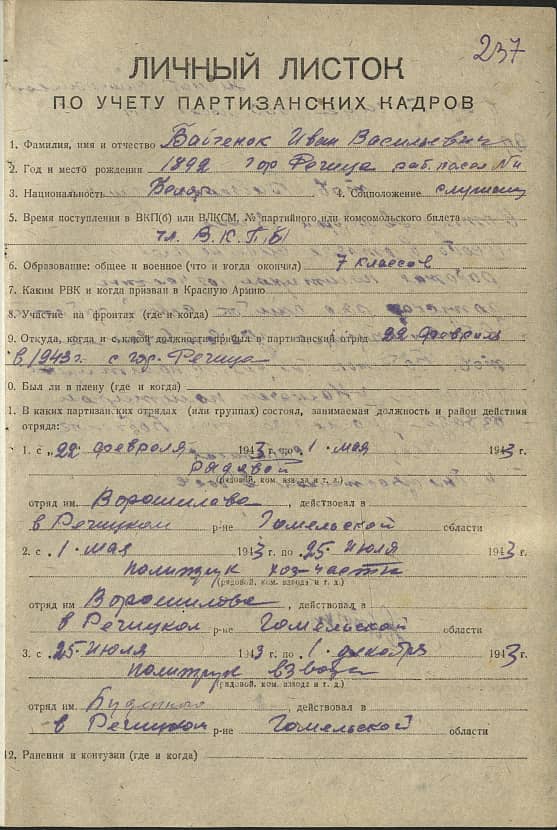 237
ЛИЧНЫЙ ЛИСТОК
ПО УЧЕТУ ПАРТИЗАНСКИХ КАДРОВ
1. Фамилия, имя и отчество Байченок Иван Васильевич
2. Год и место рождения 1892 гор Речица раб. посел №
3. Национальность 4. Соцположение служащ
5. Время поступления в ВКП(б) или ВЛКСМ, № партийного или комсомольского билета
чл. В.К.П.Б
6. Образование: общее и военное (что и когда окончил) 7 классов
7. Каким РВК и когда призван в Красную Армию
8. Участие на фронтах (где и когда)
9. Откуда, когда и с какой должности прибыл в партизанский отряд 22 февраля
в 1943 г. с гор. Речица
0. Был ли в плену (где и когда)
1. В каких партизанских отрядах (или группах) состоял, занимаемая должность и район действия
отряда:
1. с „22 февраля 1943 г. по 1 мая 1943 г.
рядовой
(рядовой, ком. взвода и т. д.)
отряд им. Ворошилова, действовал в
в Речицком р-не Гомельской области
2. с „1 мая 1943 г. по 25 июля 1943 г.
политрук хоз-части
(рядовой, ком. взвода и т. д.)
отряд им Ворошилова, действовал в
в Речицком р-не Гомельской области
3. с „25 июля 1943 г. по 1 декабря 1943 г.
политрук взвода
(рядовой, ком. взвода и т. д.)
отряд им. Буденного, действовал в
в Речицком р-не Гомельской области
12. Ранения и контузии (где и когда)